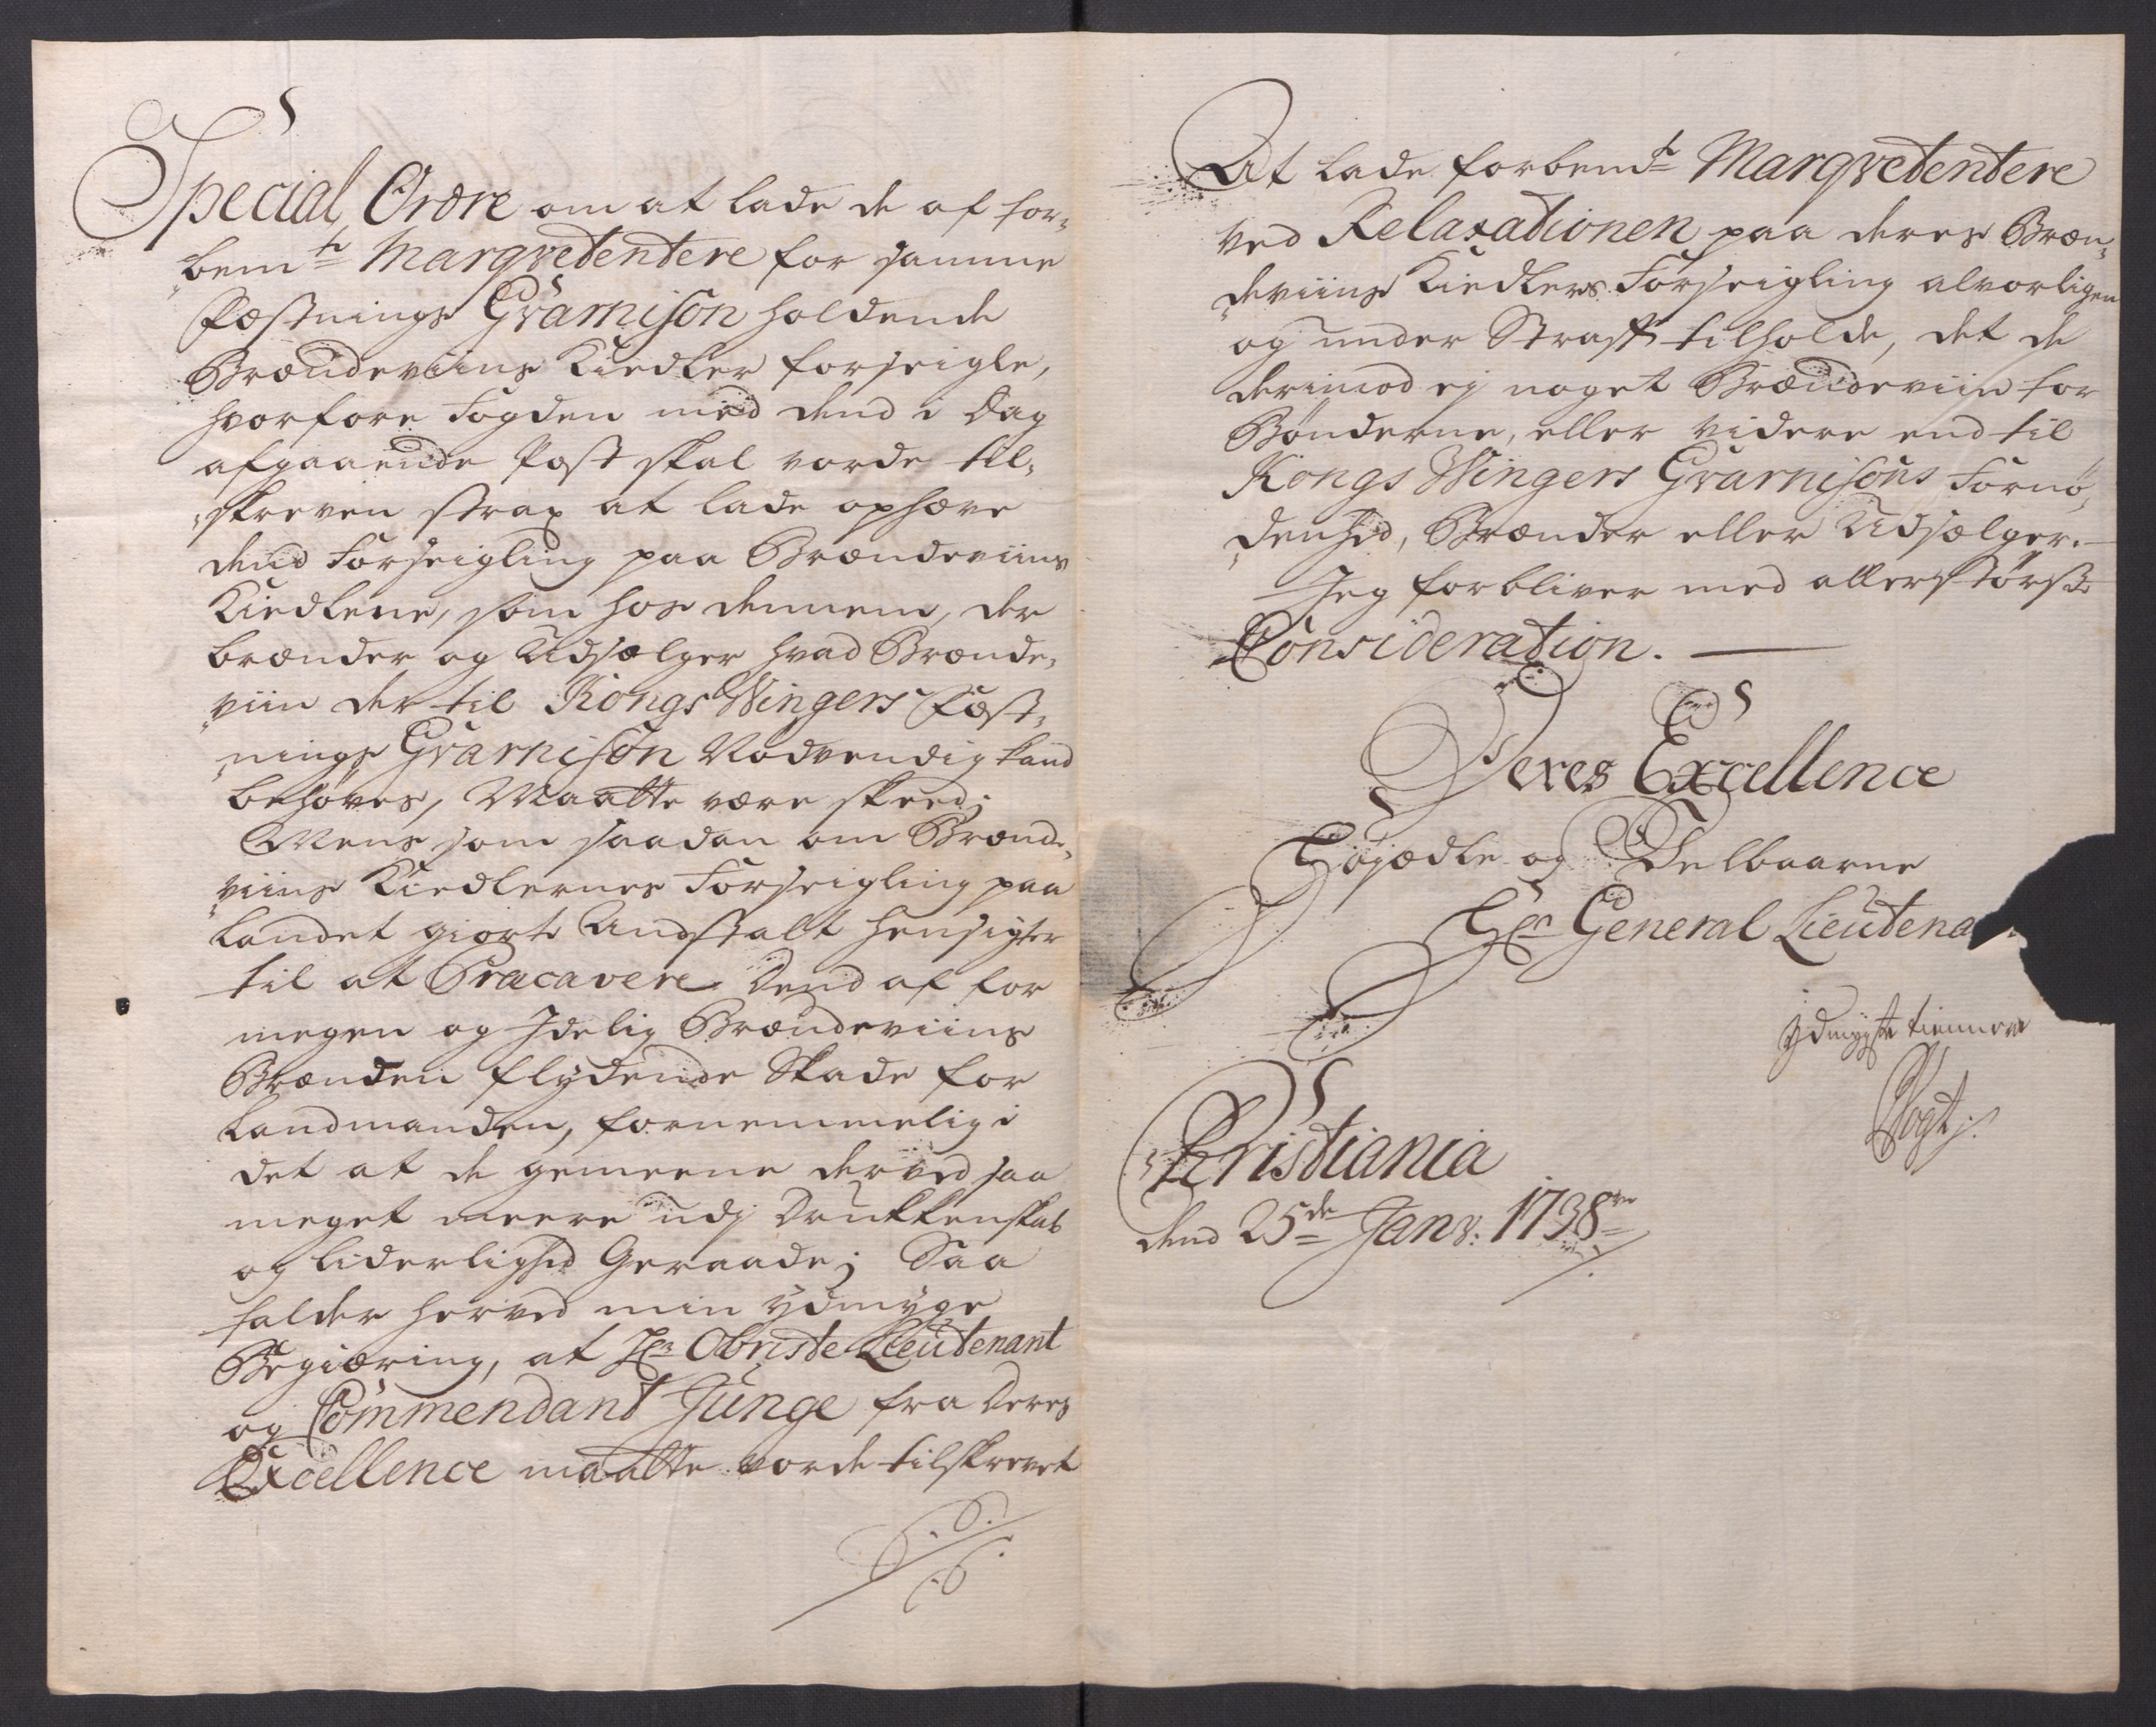 Special Ordre om at lade de af for„
„bemte Marqvetentere for samme
Fæstnings Gvarnison holdende
Brændeviins Kiedler forseigle,
hvorfore Fogden med dend i Dag
afgaaende Post skal vorde til„
„skreven strax at lade ophæve
dend Forseigling paa Brændeviins
Kiedlene, som hos dennem, der
brænder og Udsælger hvad Brænde„
„viin der til Kongs Wingers Fæst„
„nings Gvarnison Nødvendig kand
behøves, Maatte være skeed;
Mens som saadan om Brænde„
„viins Kiedlernes Forseigling paa
Landet giorte Anstalt hensigter
til at Præcavere Dend af for
megen og Idelig Brændeviins
Brænden flydende Skade for
Landmanden, fornemmelig i
det at de gemeene derved saa
meget meere udj Drukkenskab
og liderlighed Geraade; Saa
falder herved min ydmyge
Begiæring, at Hr Obriste Lieutenant
og Commendant Junge fra Deres
Excellence maatte vorde tilskrevet
At lade forbemte Marqvetentere
ved Relaxationen paa deres Bræn„
„deviins Kiedlers Forseigling alvorligen
og under Straff tilholde, det de
derimod ej noget Brændeviin for
Bønderne, eller videre end til
Kongs Wingers Gvarnisons Fornø„
„denhed, Brænder eller Udsælger.
Jeg forbliver med allerstørste
Consideration.
Deres Excellence
Højædle og Velbaarne
Hr General Lieutena
ydmygste tienner
Vogt
Christiania
dend 25de Janv: 1738